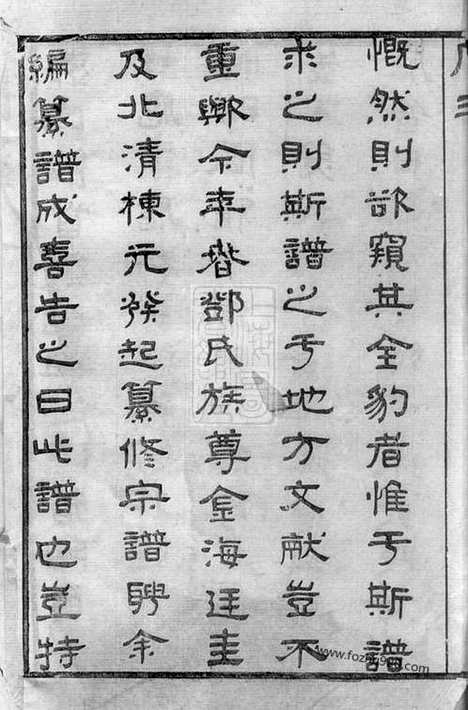 慨然則欲窺其全豹者惟于斯譜
求之則斯譜之于地方文獻豈不
重歟今年春鄧氏族尊金海廷圭
及北清棟元發起纂修宗譜聘余
編纂譜成喜告之曰此譜也豈特